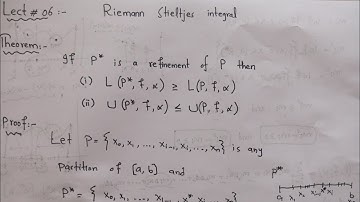 Lect # 06:- Riemann Stieltjes integral
Theorem:-
If P* is a refinement of P then
(i) L(P*, f, α) ≥ L(P, f, α)
(ii) U(P*, f, α) ≤ U(P, f, α)
Proof:-
Let P = { x₀, x₁, ..., xᵢ₋₁, xᵢ, ..., xₙ } is any
partition of [a, b] and P*
P* = { x₀, x₁